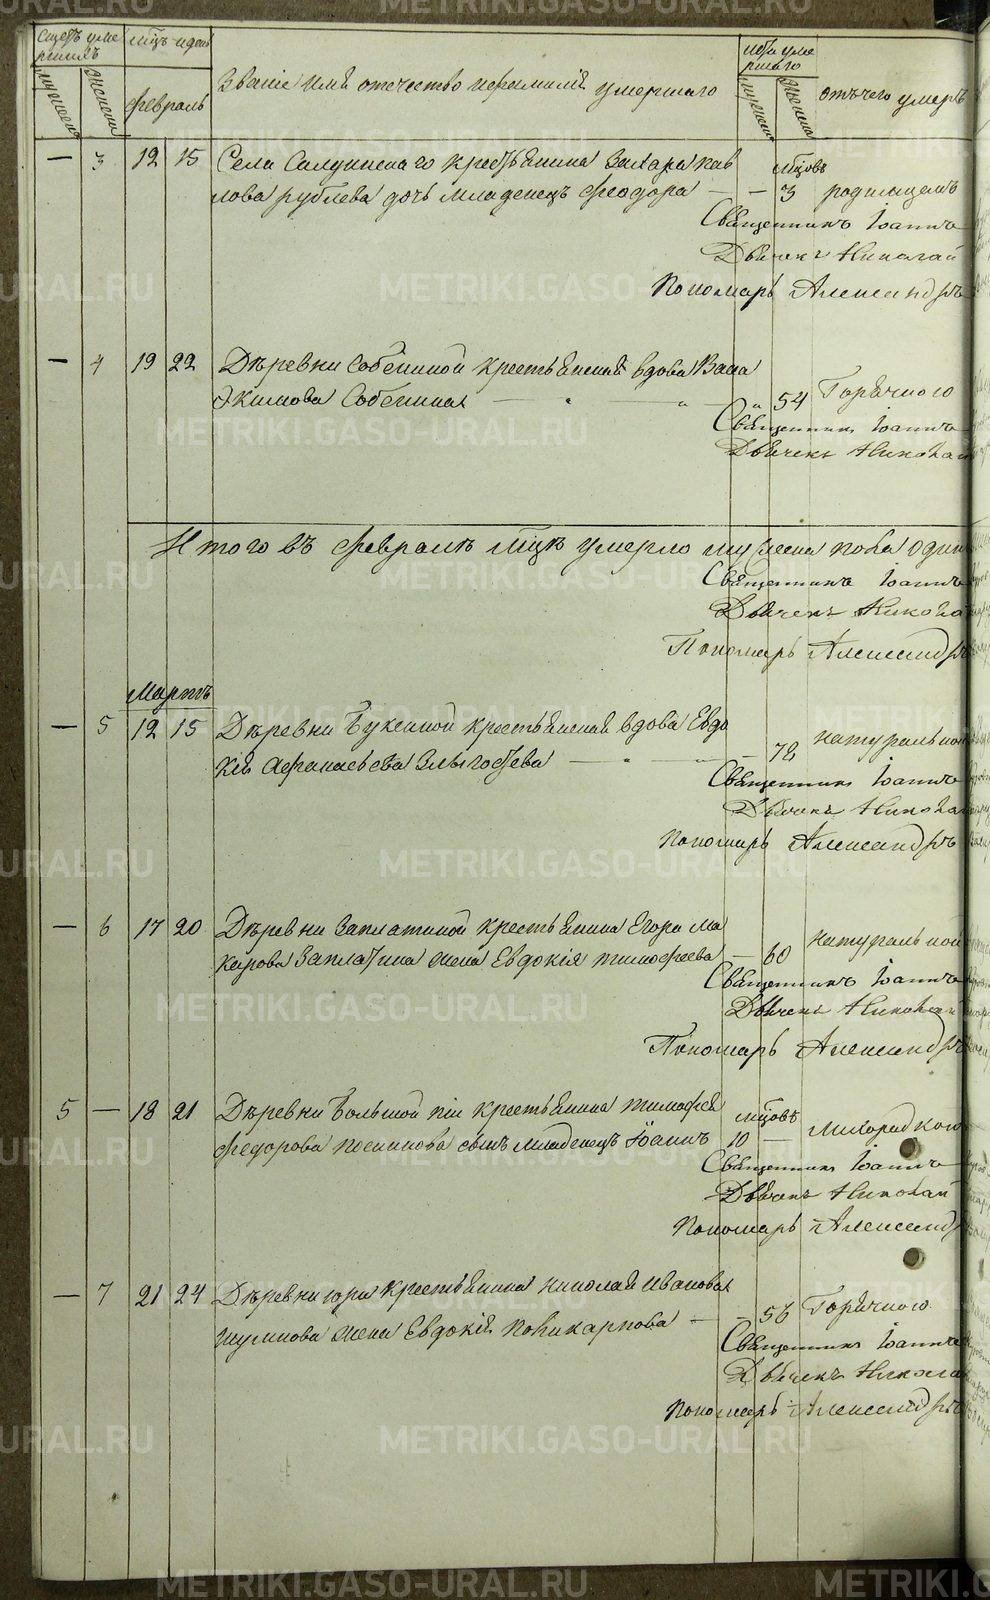 Счетъ уме мцъ и день
ршихъ
мужеска женска февраль Званіе имя отечество и фамилія умершаго
лѣта уме
ршаго
мужеска женска отъ чего умеръ
— 3 12 15 Села крестьянина Захара Пав мцовъ
лова рублева дочь младенецъ Феодора — — 3 родимцемъ
Священникъ Іоаннъ
Дьячекъ Николай
Пономарь Александръ
— 4 19 22 Деревни Собениной крестьянская вдова
Собенина — " — " — " 54 Горячкою
Священникъ Іоаннъ
Дьячекъ Николай
Итого въ Февралѣ мцѣ умерло мужеска пола один
Священникъ Іоаннъ
Дьячекъ Никола
Пономарь Александръ
Мартъ
— 5 12 15 Деревни крестьянская вдова Евдо
кія Афанасьева — " — " — 72 натуральною
Священникъ Іоаннъ
Дьячекъ Никола
Пономарь Александръ
— 6 17 20 Деревни Заплатиной крестьянина Егора Ма
карова Заплатина жена Евдокія Тимофеева — 60 натуральной
Священникъ Іоаннъ
Дьячекъ Николай
Пономарь Александръ
5 — 18 21 Деревни Большой крестьянина Тимофея мцовъ
Федорова сынъ младенецъ Іоаннъ 10 — Лихорадкою
Священникъ Іоаннъ
Дьячекъ Николай
Пономарь Александ
— 7 21 24 Деревни крестьянина Николая Иванова
жена Евдокія Поликарпова — — 56 Горячкою
Священникъ Іоаннъ
Дьячекъ Никола
Пономарь Александръ
METRIKI.GASO-URAL.RU